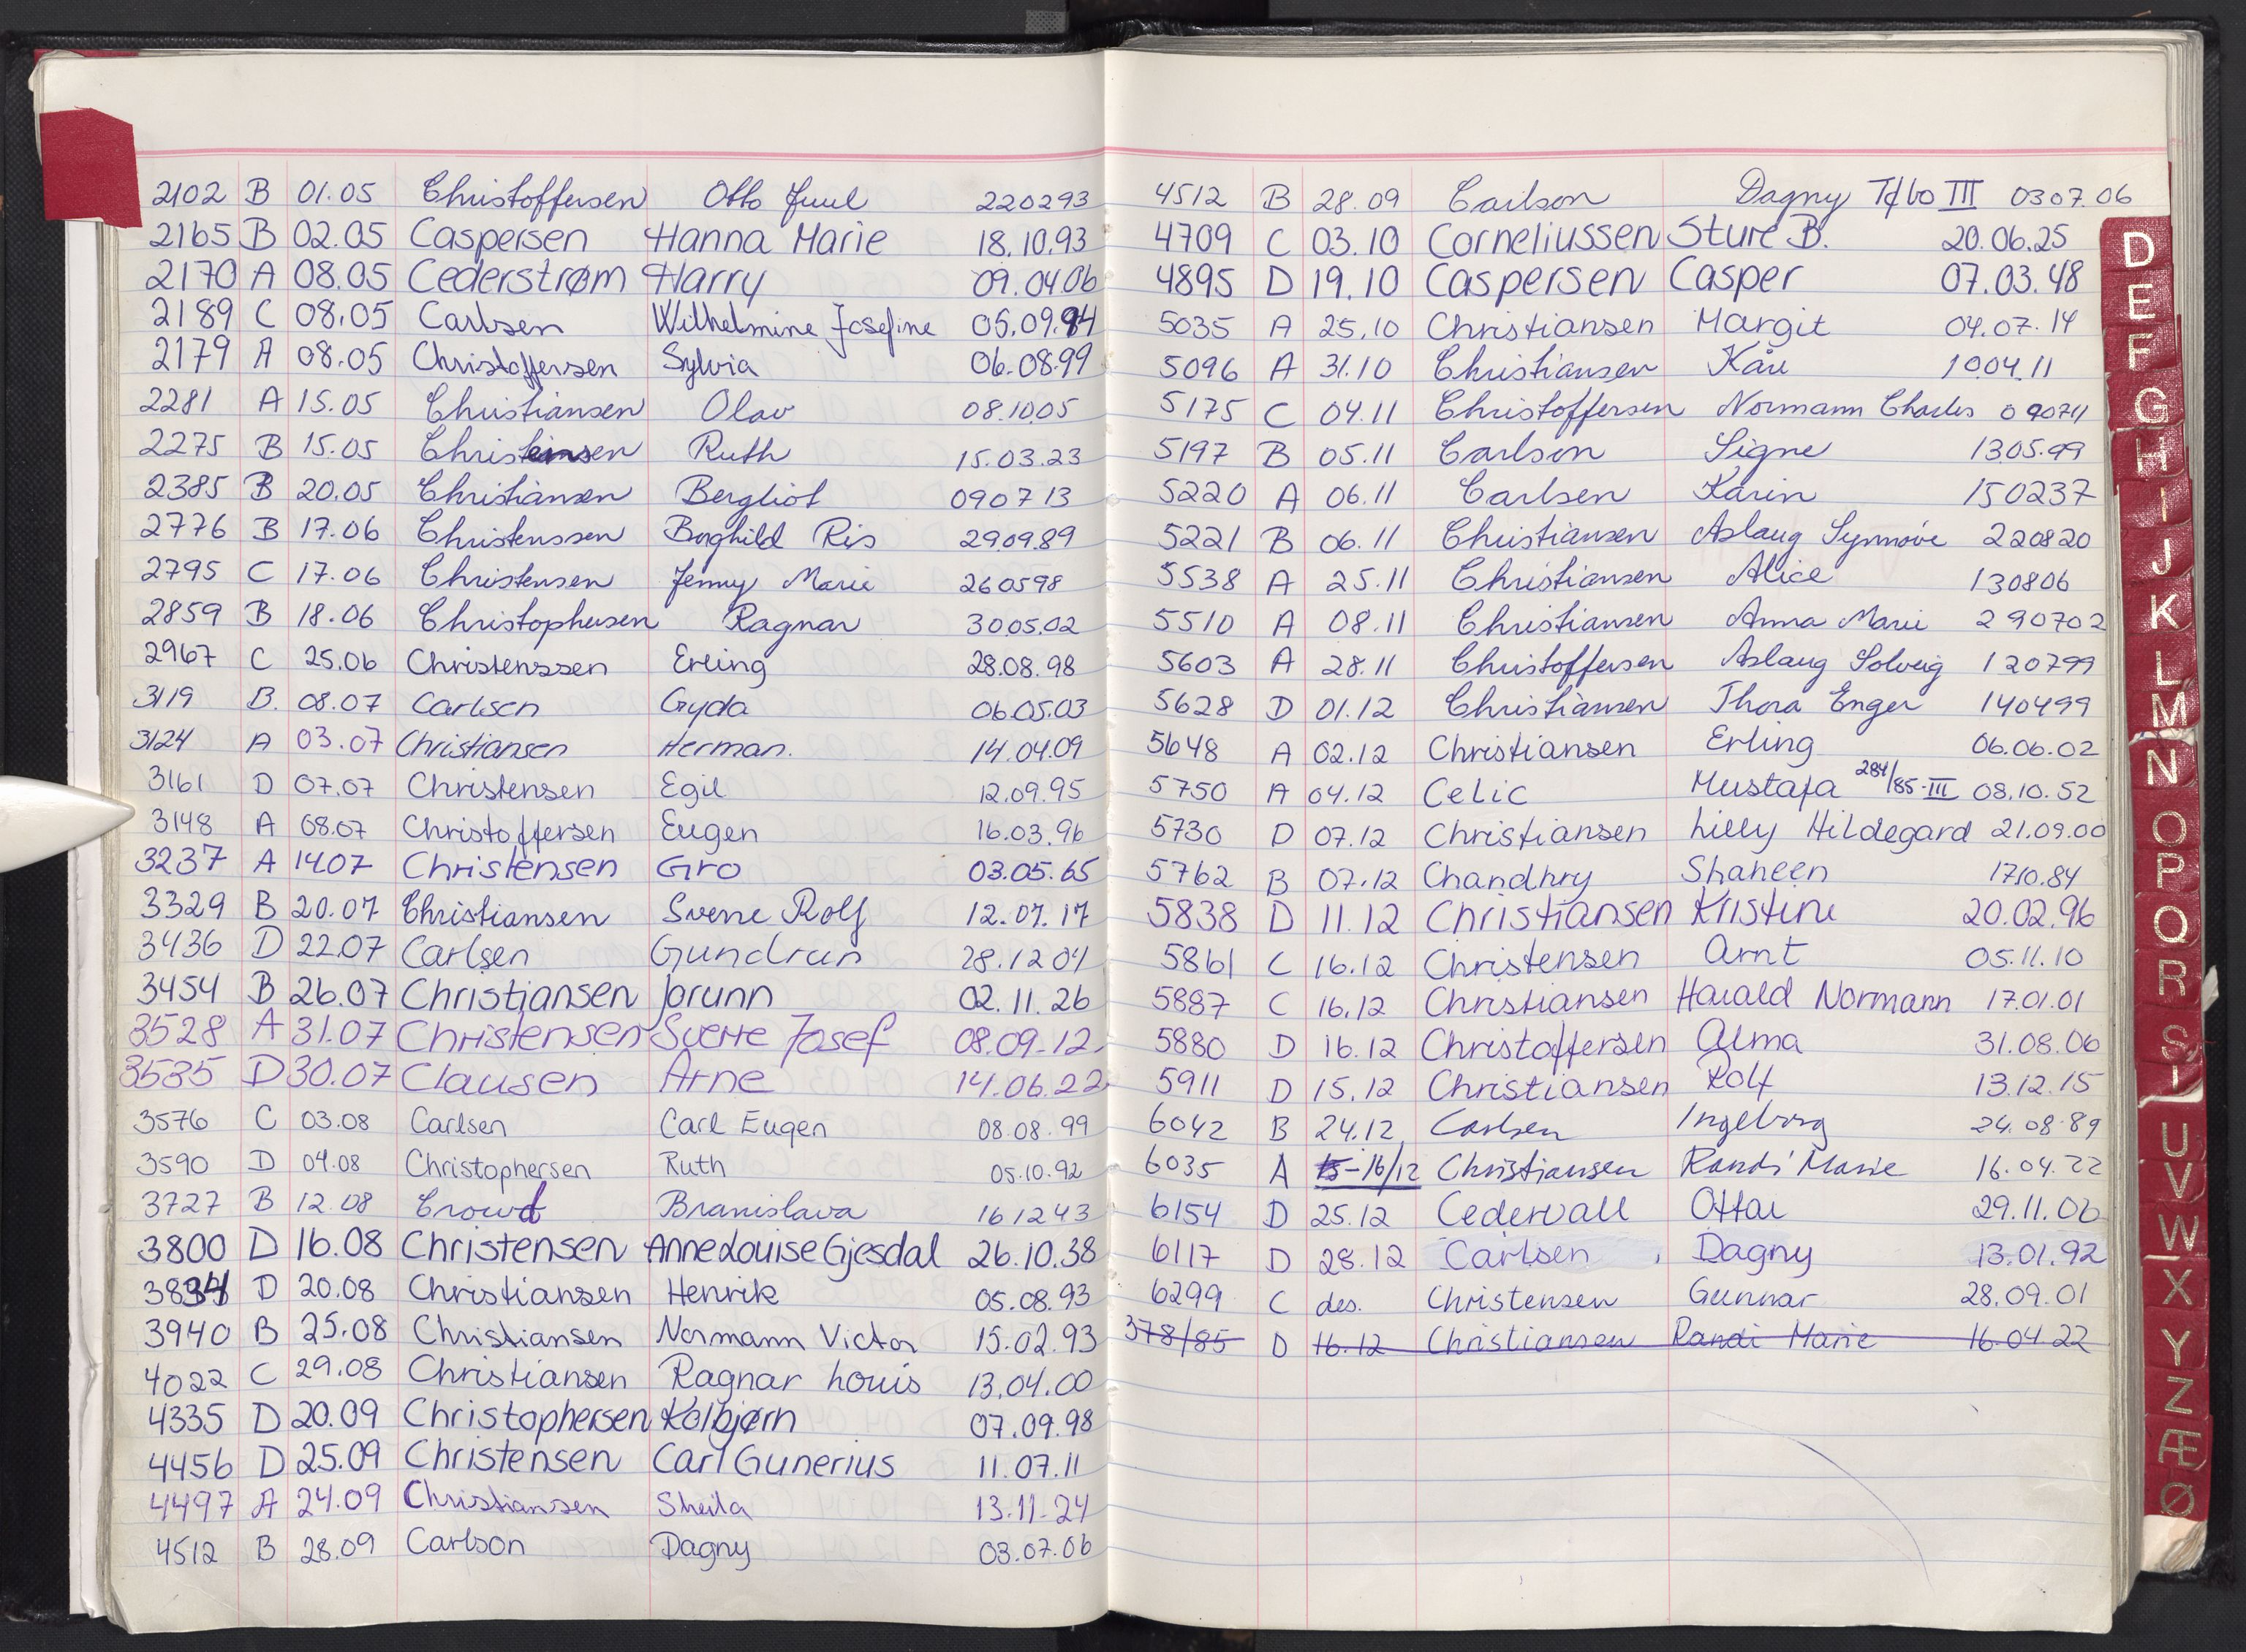 2102 B 01.05 Christoffersen Otto Juul 220293
2165 B 02.05 Caspersen Hanna Marie 18.10.93
2170 A 08.05 Cederstrøm Harry 09.04.06
2189 C 08.05 Carlsen Wilhelmine Josefine 05.09.94
2179 A 08.05 Christoffersen Sylvia 06.08.99
2281 A 15.05 Christiansen Olav 08.10.05
2275 B 15.05 Christensen Ruth 15.03.23
2385 B 20.05 Christiansen Bergliot 090713
2776 B 17.06 Christenssen Borghild Ris 29.09.89
2795 C 17.06 Christensen Jenny Marie 260598
2859 B 18.06 Christophersen Ragnar 30.05.02
2967 C 25.06 Christenssen Erling 28.08.98
3119 B. 08.07 Carlsen Gyda 06.05.03
3124 A 03.07 Christiansen Herman. 14.04.09
3161 D 07.07 Christensen Egil 12.09.95
3148 A 08.07 Christoffersen Eugen 16.03.96
3237 A 14.07 Christensen Gro 03.05.65
3329 B 20.07 Christiansen Sverre Rolf 12.07.17
3436 D 22.07 Carlsen Gundrun 28.12 04
3454 B 26.07 Christiansen Jorunn 02.11.26
3528 A 31.07 Christensen Sverre Josef 08.09-12
3535 D 30.07 Clausen Arne 14.06.22
3576 C 03.08 Carlsen Carl Eugen 08.08.99
3590 D 04.08 Christophersen Ruth 05.10.92
3727 B 12.08 Branislava 161243
3800 D 16.08 Christensen Anne Louise Gjesdal 26.10.38
3834 D 20.08 Christiansen Henrik 05.08.93
3940 B 25.08 Christiansen Normann Victor 15.02.93
4022 C 29.08 Christiansen Ragnar Louis 13.04.00
4335 D 20.09 Christophersen Kolbjørn 07.09.98
4456 D 25.09 Christensen Carl Gunerius 11.07.11
4497 A 24.09 Christiansen Sheila 13.11-24
4512 B 28.09 Carlson Dagny 03.07.06
4512 B 28.09 Carlson Dagny III 0307.06
4709 C 03.10 Corneliussen Sture B. 20.06.25
4895 D 19.10 Caspersen Casper 07.03.48
5035 A 25.10 Christiansen Margit 04.07.14
5096 A 31.10 Christiansen Kåre 1004.11
5175 C 04.11 Christoffersen Normann Charles
5197 B 05.11 Carlson Signe 1305.99
5220 A 06.11 Carlsen Karin 150237
5221 B 06.11 Christiansen Aslaug Synnøve 220820
5538 A 25.11 Christiansen Alice 130806
5510 A 08.11 Christiansen Anna Marie 290702
5603 A 28.11 Christoffersen Aslaug Solveig 120799
5628 D 01.12 Christiansen Thora Enger 140499
5648 A 02.12 Christiansen Erling 06.06.02
5750 A 04.12 Celic Mustafa 284/85-III 08.10.52
5730 D 07.12 Christiansen Lilly Hildegard 21.09.00
5762 B 07.12 Chandhry Shaheen 1710.84
5838 D 11.12 Christiansen Kristine 20.02.96
5861 C 16.12 Christensen Arnt 05.11.10
5887 C 16.12 Christiansen Harald Normann 17.01.01
5880 D 16.12 Christoffersen Alma 31.08.06
5911 D 15.12 Christiansen Rolf 13.12.15
6042 B 24.12 Carlsen Ingeborg 24.08.89
6035 A 15-16/12 Christiansen Randi Marie 16.04.22
6154 D 25.12 Cedervall Ottar 29.11.06
6117 D 28.12 Carlsen Dagny 13.01.92
6299 C des. Christensen Gunnar 28.09.01
378/85 D 16.12 Christiansen Randi Marie 16.04 22
D
E
F
G
H
I
J
K
L
M
N
O
P
Q
R
S
U
V
W
X
Y
Z
Æ
Ø